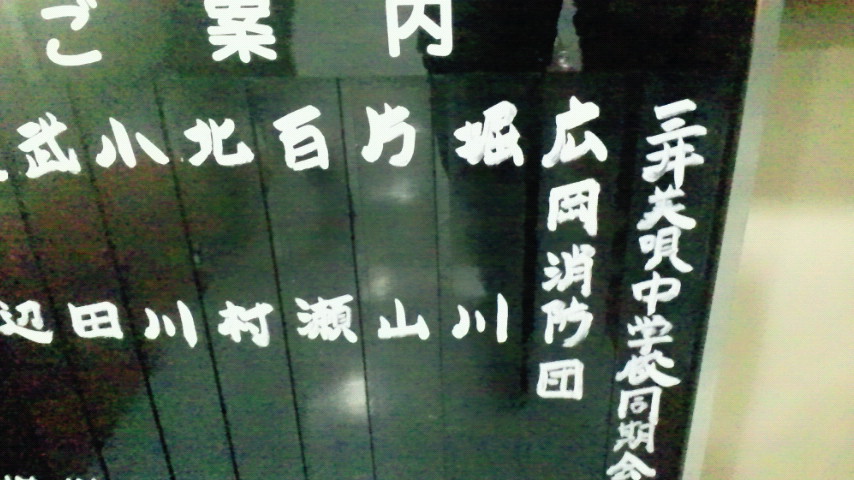 ご案内
三井美唄中学校同期会
広岡消防団
堀川
片山
百瀬
北村
小川
武田
辺